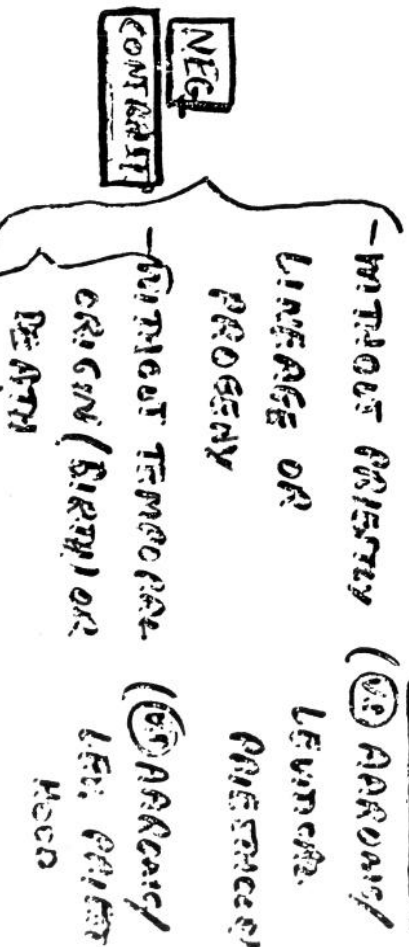 NEG
CONTRAST
- WITHOUT PRIESTLY
LINEAGE OR
PROGENY
(VS AARONIC/
LEVITICAL
PRIESTHOOD)
- WITHOUT TEMPORAL
ORIGIN (BIRTH) OR
DEATH
(VS AARONIC/
LEV. PRIEST
HOOD